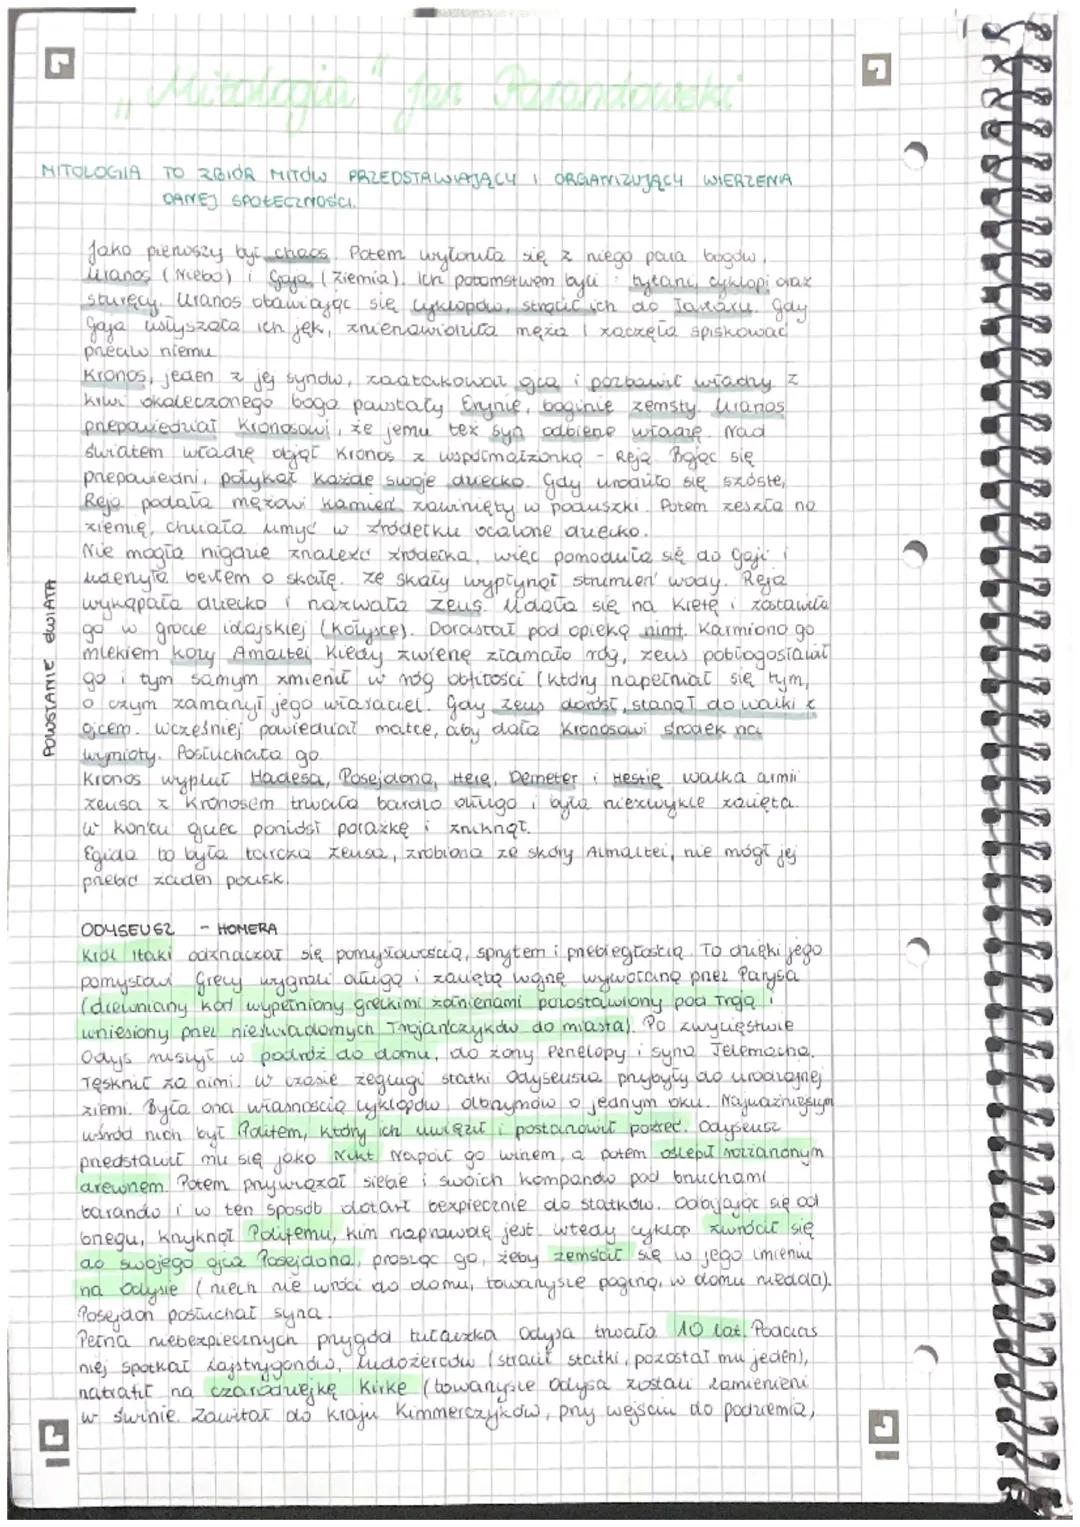 „Mitologia" Jan Parandowski
MITOLOGIA TO ZBIÓR MITÓW PRZEDSTAWIAJĄCY I ORGANIZUJĄCY WIERZENIA
DANEJ SPOŁECZNOŚCI.
POWSTANIE ŚWIATA
Jako pierwszy był chaos. Potem wyłoniła się z niego para bogów,
Uranos (Niebo) i Gaja (Ziemia). Ich potomstwem byli tytani, cyklopi oraz
sturęcy. Uranos obawiając się cyklopów, strącił ich do Tartaru. Gdy
Gaja usłyszała ich jęk, znienawidziła męża i zaczęła spiskować
przeciw niemu
Kronos, jeden z jej synów, zaatakował ojca i pozbawił władzy z
krwi okaleczonego boga powstały Erynie, boginie zemsty. Uranos
przepowiedział Kronosowi, że jemu też syn odbierze władzę. Nad
światem władzę objął Kronos z współmałżonką - Reją. Bojąc się
przepowiedni, połykał każde swoje dziecko. Gdy urodziło się szóste,
Reja podała mężowi kamień zawinięty w poduszki. Potem zeszła na
ziemię, chciała umyć w źródełku ocalone dziecko.
Nie mogła nigdzie znaleźć źródełka, więc pomodliła się do Gaji i
uderzyła berłem o skałę. Ze skały wypłynął strumień wody. Reja
wykąpała dziecko i nazwała Zeus. Udała się na Kretę i zostawiła
go w grocie idajskiej (kołysce). Dorastał pod opieką nimf. Karmiono go
mlekiem kozy Amaltei. Kiedy zwierzę złamało róg, Zeus pobłogosławił
go i tym samym zmienił w róg obfitości (który napełniał się tym,
o czym zamarzył jego właściciel. Gdy Zeus dorósł, stanął do walki z
ojcem. Wcześniej powiedział matce, aby dała Kronosowi środek na
wymioty. Posłuchała go.
Kronos wypluł Hadesa, Posejdona, Herę, Demeter i Hestię. walka armii
Zeusa z Kronosem trwała bardzo długo i była niezwykle zacięta.
W końcu ojciec poniósł porażkę i zniknął.
Egida to była tarcza Zeusa, zrobiona ze skóry Almaltei, nie mógł jej
przebić żaden pocisk.
ODYSEUSZ - HOMERA
Król Itaki odznaczał się pomysłowością, sprytem i przebiegłością. To dzięki jego
pomysłowi Grecy wygrali długą i zaciętą wojnę wywołaną przez Parysa
(drewniany koń wypełniony greckimi żołnierzami pozostawiony pod Troją i
wniesiony przez nieświadomych Trojańczyków do miasta). Po zwycięstwie
Odys ruszył w podróż do domu, do żony Penelopy i syna Telemacha.
Tęsknił za nimi. W czasie żeglugi statki Odyseusza przybyły do urodzajnej
ziemi. Była ona własnością cyklopów, olbrzymów o jednym oku. Najważniejszym
wśród nich był Polifem, który ich uwięził i postanowił pożreć. Odyseusz
przedstawił mu się jako Nikt. Napoił go winem, a potem oślepił rozżarzonym
drewnem. Potem przywiązał siebie i swoich kompanów pod brzuchami
baranów i w ten sposób dotarł bezpiecznie do statków. Odbijając się od
brzegu, krzyknął Polifemu, kim naprawdę jest. wtedy cyklop zwrócił się
do swojego ojca Posejdona, prosząc go, żeby zemścił się w jego imieniu
na Odysie (niech nie wróci do domu, towarzysze poginą, w domu nieład).
Posejdon posłuchał syna.
Pełna niebezpiecznych przygód tułaczka Odysa trwała 10 lat. Podczas
niej spotkał Lajstrygonów, ludożerców (stracił statki, pozostał mu jeden),
natrafił na czarodziejkę Kirke (towarzysze Odysa zostali zamienieni
w świnie. Zawitał do kraju Kimmerczyków, przy wejściu do podziemia,